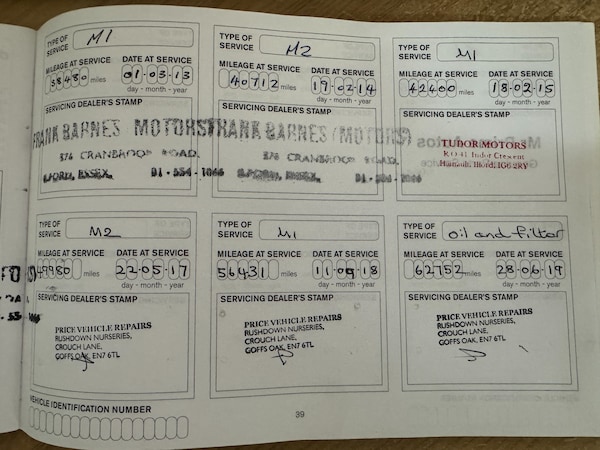 TYPE OF SERVICE M1
MILEAGE AT SERVICE DATE AT SERVICE
38480 miles 01-03-13
day - month - year
SERVICING DEALER'S STAMP
FRANK BARNES MOTORS
876 CRANBROOK ROAD,
ILFORD, ESSEX. 01-554-1066
TYPE OF SERVICE M2
MILEAGE AT SERVICE DATE AT SERVICE
40712 miles 19-02-14
day - month - year
SERVICING DEALER'S STAMP
FRANK BARNES (MOTORS)
876 CRANBROOK ROAD,
ILFORD, ESSEX.
TYPE OF SERVICE M1
MILEAGE AT SERVICE DATE AT SERVICE
42400 miles 18-02-15
day - month - year
SERVICING DEALER'S STAMP
TUDOR MOTORS
Tudor Crescent
Hainault, Ilford, IG6 2RY
TYPE OF SERVICE M2
MILEAGE AT SERVICE DATE AT SERVICE
49980 miles 22-05-17
day - month - year
SERVICING DEALER'S STAMP
PRICE VEHICLE REPAIRS
RUSHDOWN NURSERIES,
CROUCH LANE,
GOFFS OAK, EN7 6TL
TYPE OF SERVICE M1
MILEAGE AT SERVICE DATE AT SERVICE
56431 miles 11-09-18
day - month - year
SERVICING DEALER'S STAMP
PRICE VEHICLE REPAIRS
RUSHDOWN NURSERIES,
CROUCH LANE,
GOFFS OAK, EN7 6TL
TYPE OF SERVICE oil and filter
MILEAGE AT SERVICE DATE AT SERVICE
62752 miles 28-06-19
day - month - year
SERVICING DEALER'S STAMP
PRICE VEHICLE REPAIRS
RUSHDOWN NURSERIES,
CROUCH LANE,
GOFFS OAK, EN7 6TL
VEHICLE IDENTIFICATION NUMBER
39